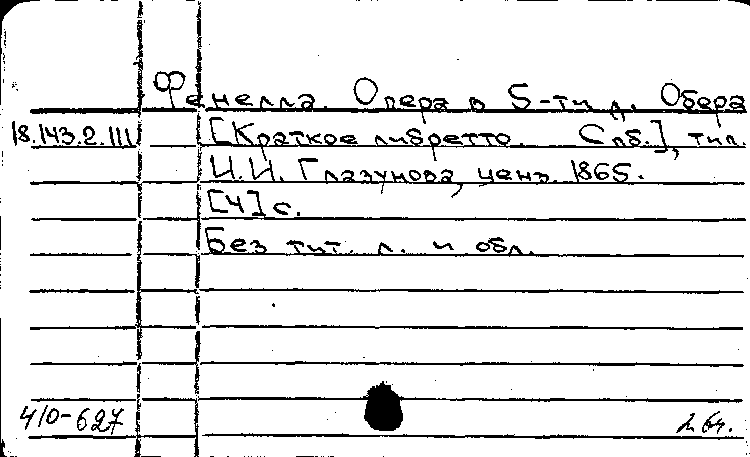 Фенелла. Опера в 5-ти д. Обера
18.143.2.111 [Краткое либретто. Спб.], тип.
И.И. Глазунова, ценз. 1865.
[4] с.
Без тит. л. и обл.
410-627